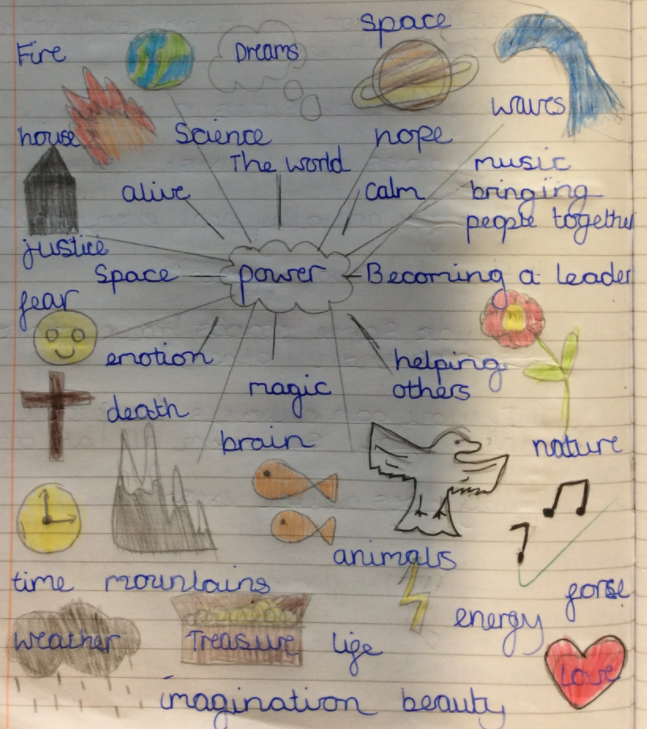 space
Fire
Dreams
waves
house
Science
hope
The world
music
alive
calm
bringing
people together
justice
Space
power
Becoming a leader
fear
emotion
helping
others
magic
death
brain
nature
animals
time
mountains
forse
energy
weather
Treasure
life
Love
imagination
beauty